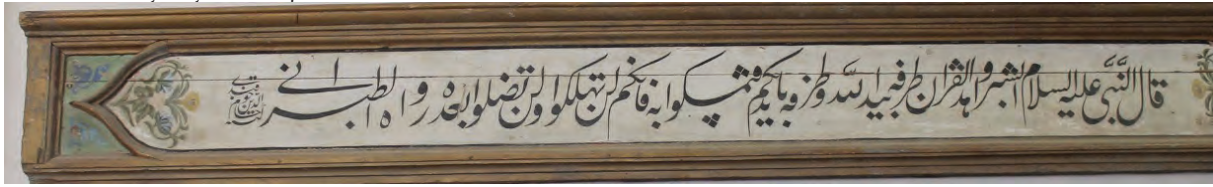 قال النبي عليه السلام ابشروا هذا القرآن طرفه بيد الله وطرفه بأيديكم فتمسكوا به فانكم لن تهلكوا ولن تضلوا بعده رواه الطبراني